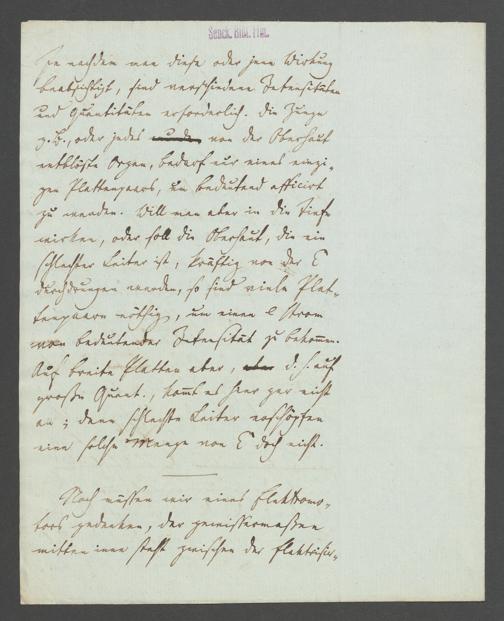 Senck. Bibl. Ffm.
Je nachdem man diese oder jene Wirkung
beabsichtigt, sind verschiedene Intensitäten
und Quantitäten erforderlich. Die Zunge
z. B., oder jedes von der Oberhaut
entblößte Organ, bedarf nur eines einzi-
gen Plattenpaars, um bedeutend afficirt
zu werden. Will man aber in die Tiefe
wirken, oder soll die Oberhaut, die ein
schlechter Leiter ist, kräftig von der E
durchdrungen werden, so sind viele Plat-
tenpaare nöthig, um einen e Strom
von bedeutender Intensität zu bekommen.
Auf breite Platten aber, d. h. auf
große Quant., kommt es hier gar nicht
an; denn schlechte Leiter erschöpfen
eine solche Menge von E doch nicht.
Noch müssen wir eines Elektromo-
tors gedenken, der gewissermaßen
mitten inne steht zwischen der Elektrisir-